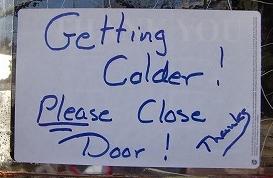 Getting
Colder!
Please Close
Door! Thanks